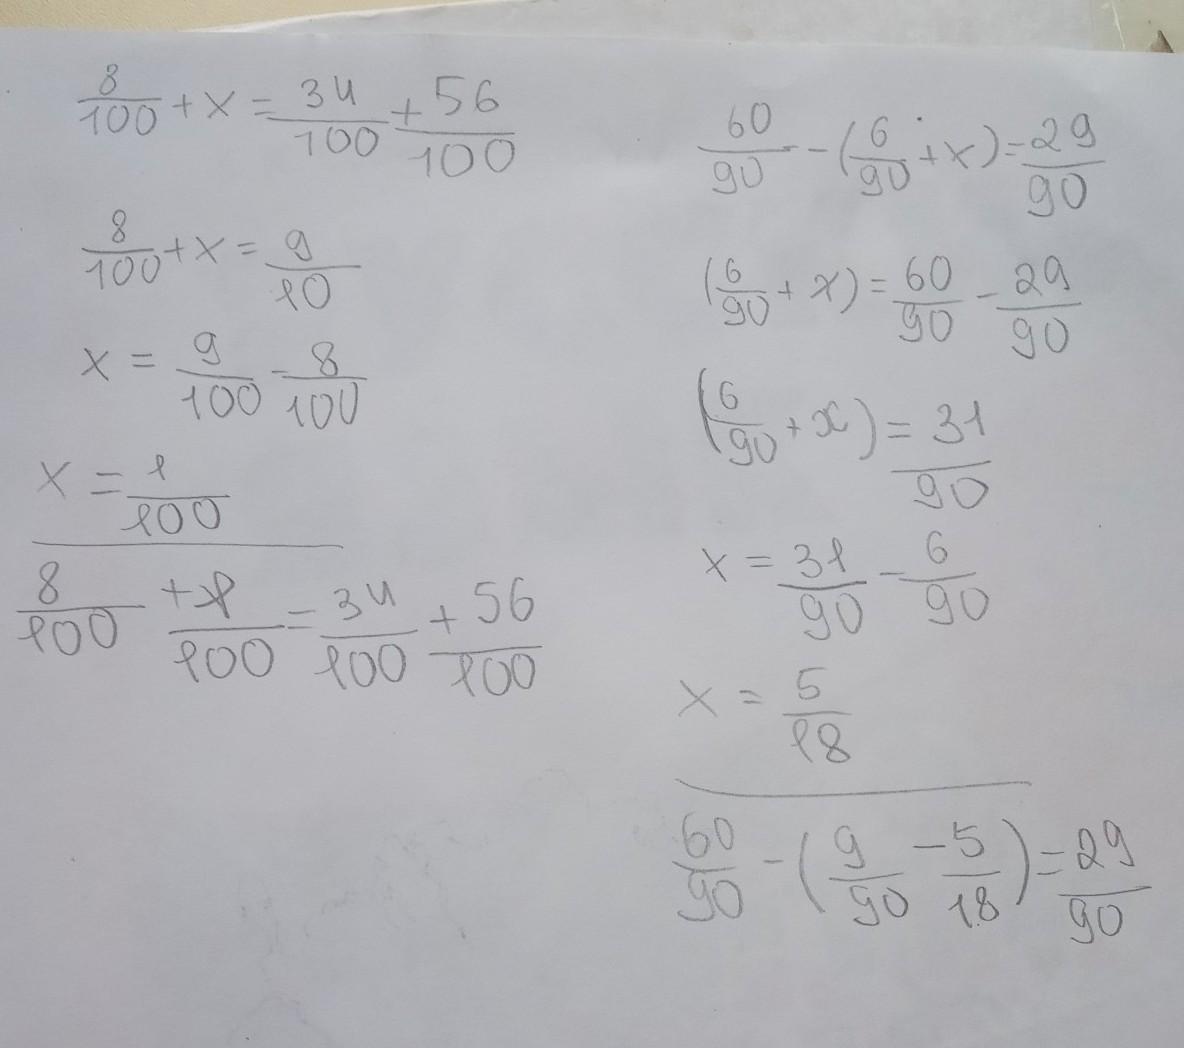 8/100 + x = 34/100 + 56/100
8/100 + x = 9/10
x = 9/100 - 8/100
x = 1/100
8/100 + 1/100 = 34/100 + 56/100
60/90 - (6/90 + x) = 29/90
(6/90 + x) = 60/90 - 29/90
(6/90 + x) = 31/90
x = 31/90 - 6/90
x = 5/18
60/90 - (9/90 - 5/18) = 29/90